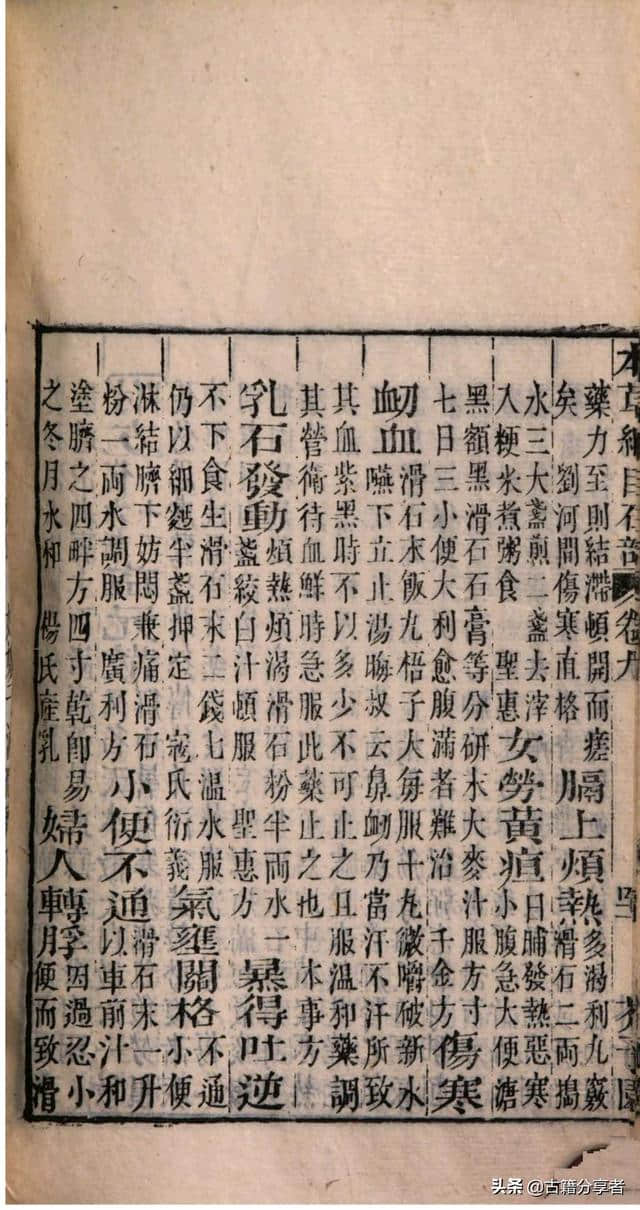 本草綱目石部 卷九 芥子園
藥力至則結滯頓開而瘥
矣 劉河間傷寒直格
膈上煩熱
多渴利九竅
滑石二兩搗
水三大盞煎二盞去滓
入粳米煮粥食 聖惠
女勞黃疸
日晡發熱惡寒
小腹急大便溏
黑額黑滑石石膏等分研末大麥汁服方寸
七日三小便大利愈腹滿者難治 千金方
傷寒
衂血
滑石末飯丸梧子大每服十丸微嚼破新水
嚥下立止湯晦叔云鼻衂乃當汗不汗所致
其血紫黑時不以多少不可止之且服溫和藥調
其營衛待血鮮時急服此藥止之也 本事方
乳石發動
煩熱煩渴滑石粉半兩水一
盞絞白汁頓服 聖惠方
暴得吐逆
不下食生滑石末二錢七溫水服
仍以細麪半盞押定 寇氏衍義
氣壅關格
不通
小便
淋結臍下妨悶兼痛滑石
粉一兩水調服 廣利方
小便不通
滑石末一升
以車前汁和
塗臍之四畔方四寸乾卽易
之冬月水和 楊氏產乳
婦人轉脬
因過忍小
便而致滑
头条 @古籍分享者